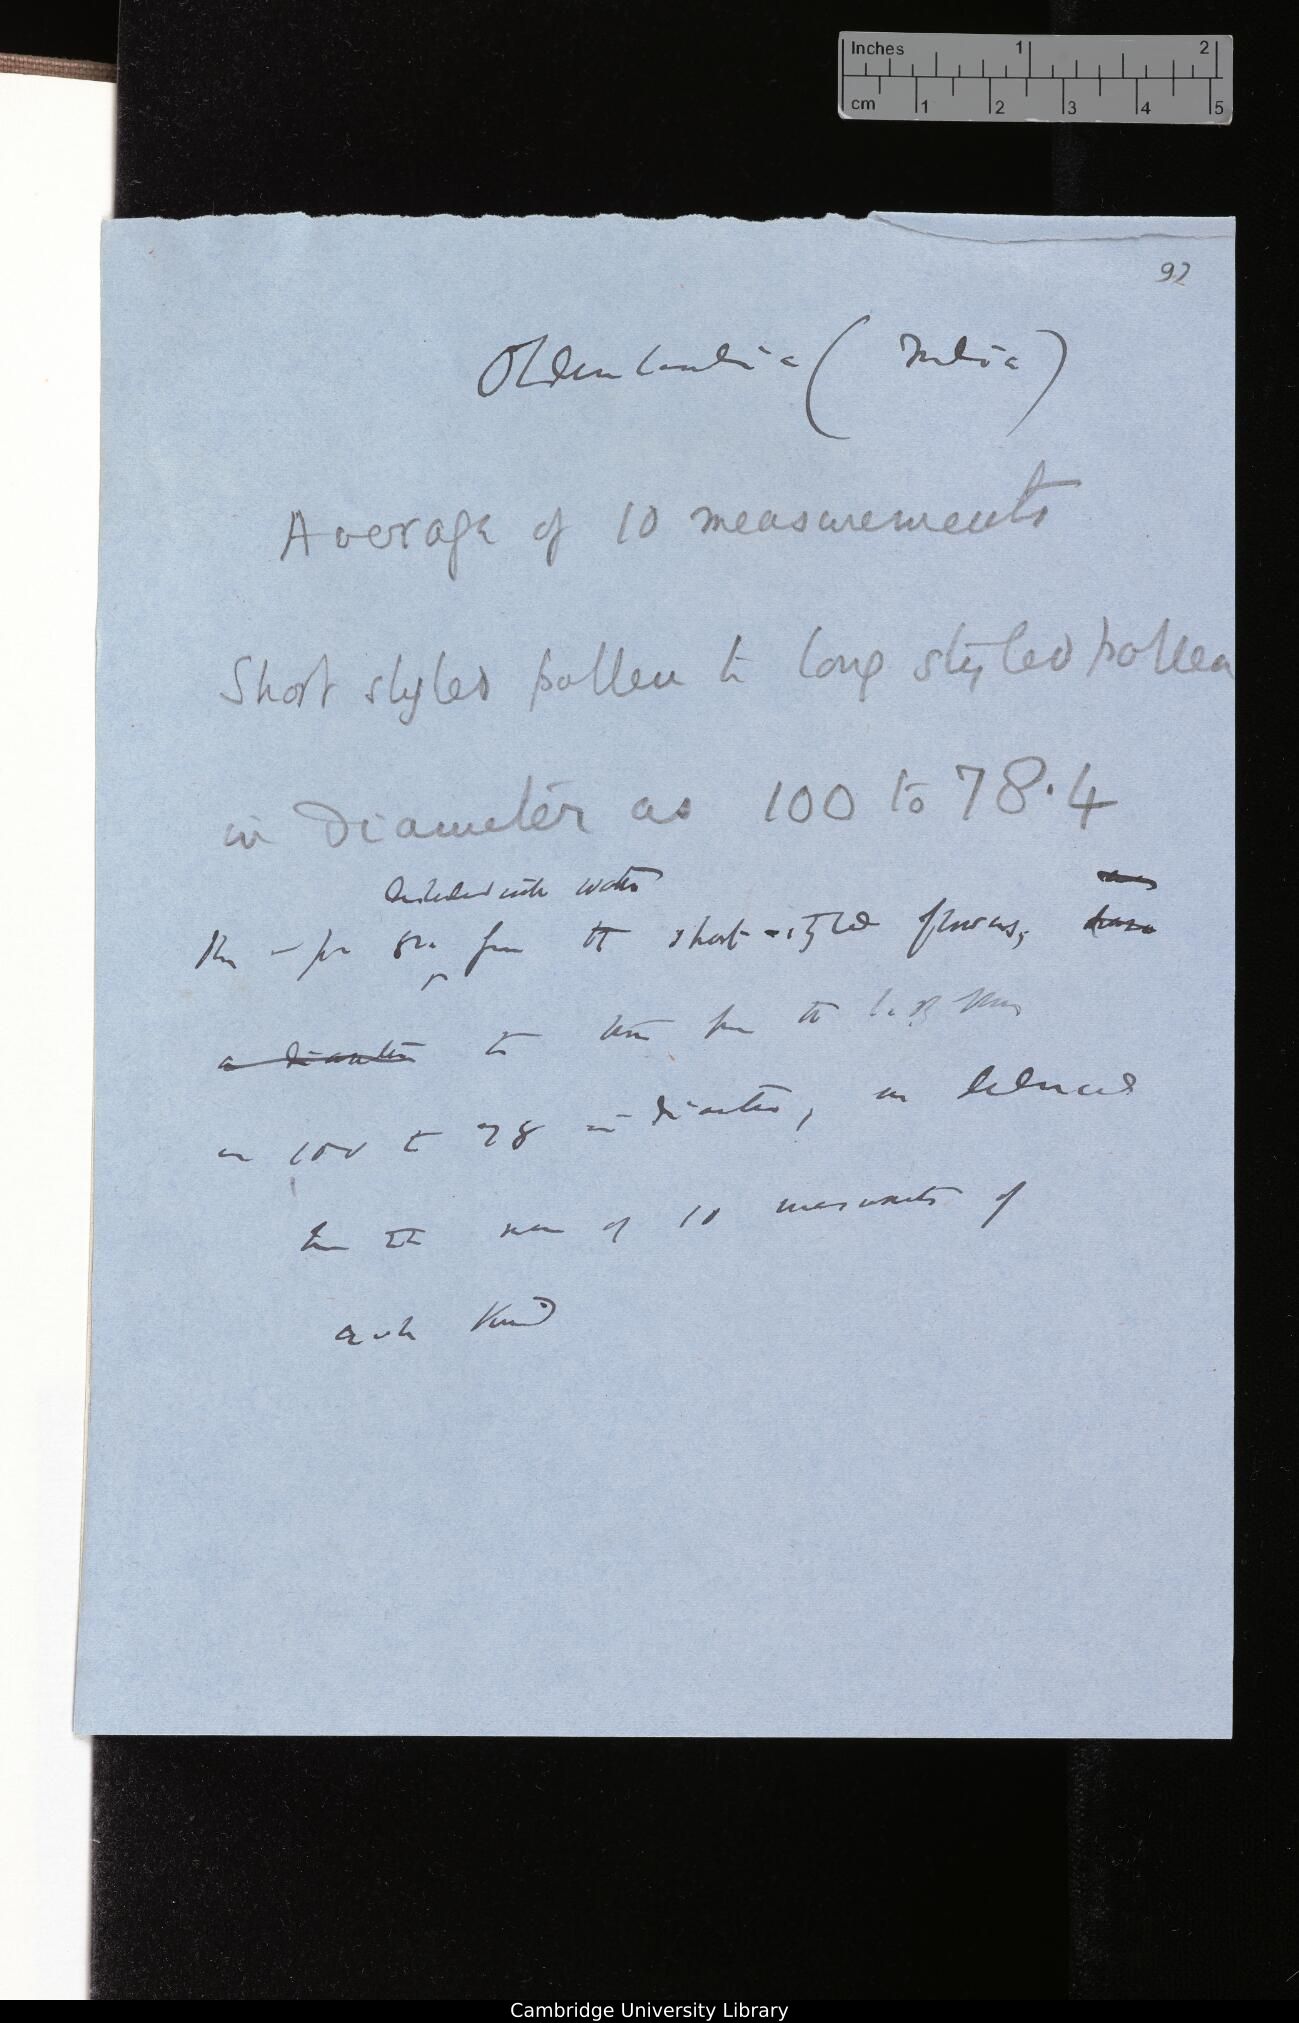 Inches 1 2
cm 1 2 3 4 5
92
Oldenlandia (India)
Average of 10 measurements
Short styled pollen to long styled pollen
in diameter as 100 to 78.4
distended with water
The pollen grs from the short-styled flowers,
in diameter to those from the
as 100 to 78 in diameter, as deduced
from the mean of 10 measurements of
each kind
Cambridge University Library